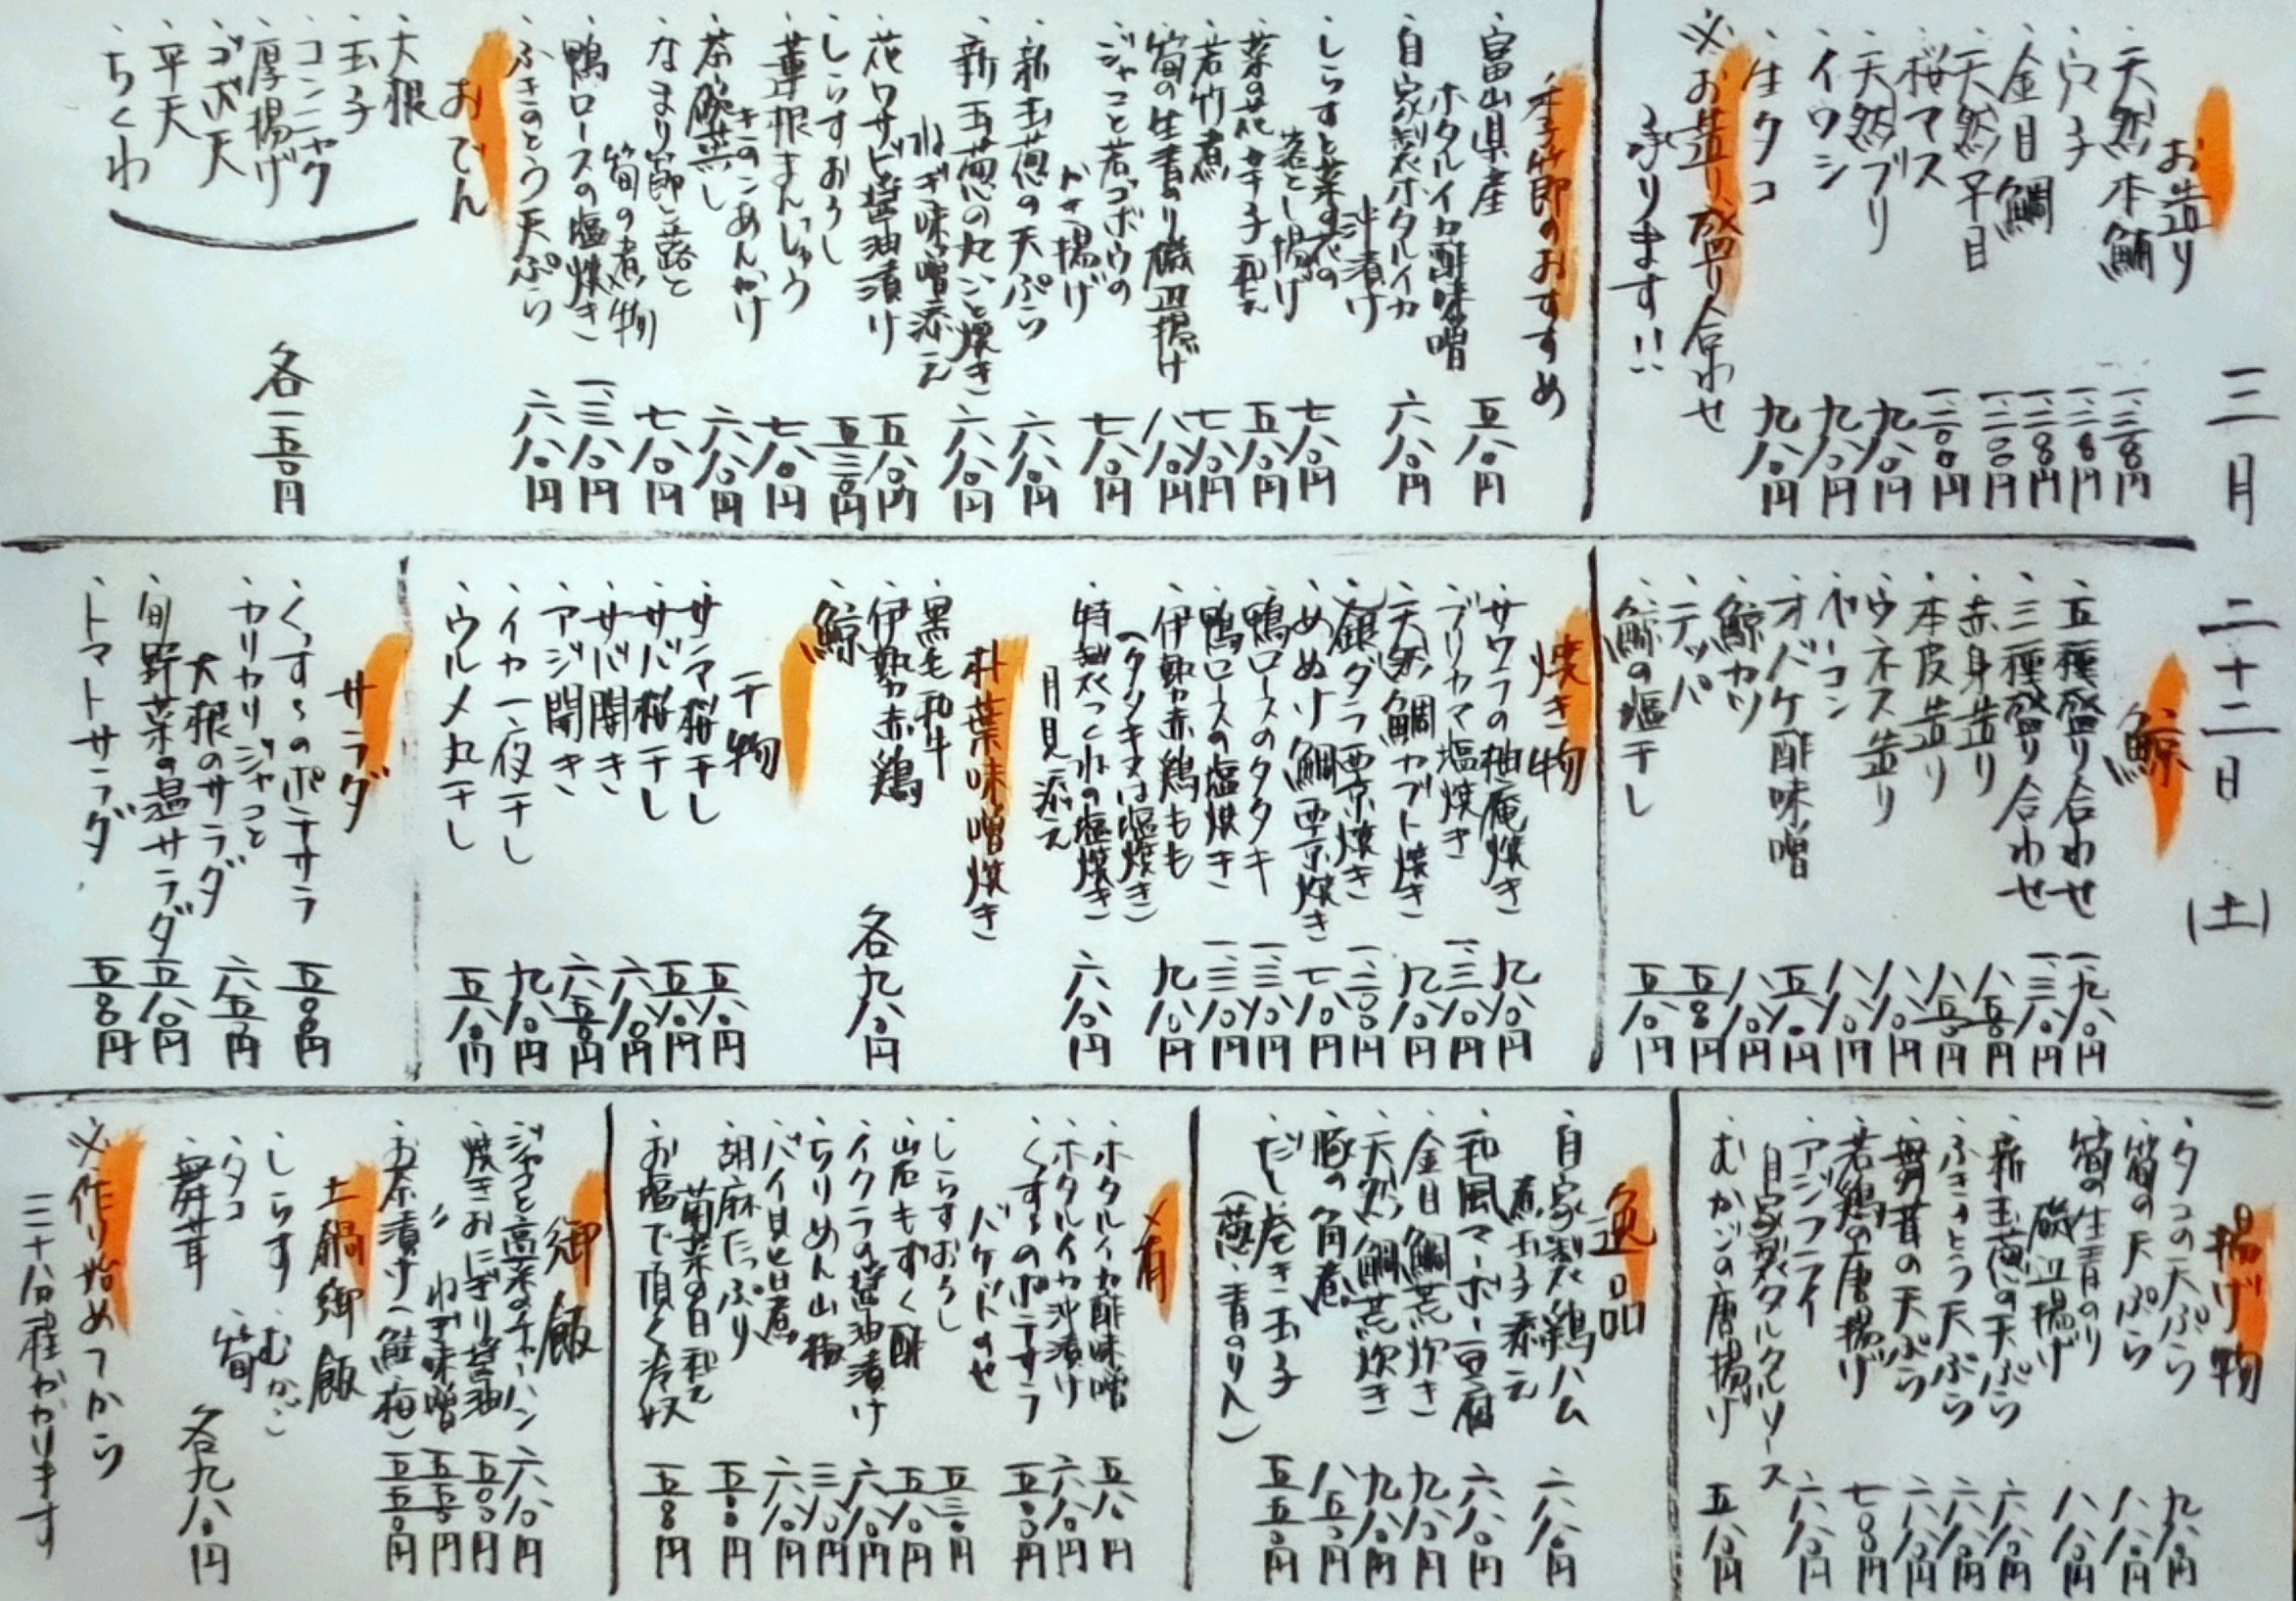 三月 二十二日 (土)
お造り
・天然本鮪 一、三八〇円
・穴子 一、二八〇円
・金目鯛 一、二八〇円
・天然平目 一、二〇〇円
・桜マス 一、二〇〇円
・天然ブリ 九八〇円
・イワシ 九八〇円
・生タコ 九八〇円
※お造り盛り合わせ
承ります!!
季節のおすすめ
・富山県産
ホタルイカ酢味噌 五八〇円
・自家製ホタルイカ
沖漬け 六八〇円
・しらすと菜の花の
落とし揚げ 七八〇円
・菜の花辛子和え 五八〇円
・若竹煮 七八〇円
・筍の生青のり磯辺揚げ 八八〇円
・ジャコと若ゴボウの
かき揚げ 七八〇円
・新玉葱の天ぷら 六八〇円
・新玉葱の丸ごと焼き
ねぎ味噌添え 六八〇円
・花ワサビ醤油漬け 五八〇円
・しらすおろし 五三〇円
・蓮根まんじゅう
きのこあんかけ 七八〇円
・茶碗蒸し 六八〇円
・なまり節と蕗と
筍の煮物 七八〇円
・鴨ロースの塩焼き 一、三八〇円
・ふきのとう天ぷら 六八〇円
おでん
・大根
・玉子
・コンニャク
・厚揚げ
・ゴボ天
・平天
・ちくわ
各一五〇円
鯨
・五種盛り合わせ 一、九八〇円
・三種盛り合わせ 一、三八〇円
・赤身造り 八五〇円
・本皮造り 八五〇円
・ウネス造り 八八〇円
・ベーコン 八八〇円
・オバケ酢味噌 五八〇円
・鯨カツ 八八〇円
・テッパ 五五〇円
・鯨の塩干し 五八〇円
焼き物
・サワラの柚庵焼き 九八〇円
・ブリカマ塩焼き 一、三八〇円
・天然鯛カブト焼き 九八〇円
・銀ダラ西京焼き 一、二〇〇円
・めぬけ鯛西京焼き 七八〇円
・鴨ロースのタタキ 一、三八〇円
・鴨ロースの塩焼き 一、三八〇円
・伊勢赤鶏もも
(タタキ又は塩焼き) 九八〇円
・特製つくねの塩焼き
月見添え 六八〇円
朴葉味噌焼き
・黒毛和牛
・伊勢赤鶏
・鯨
各九八〇円
干物
・サンマ桜干し 五八〇円
・サバ桜干し 五八〇円
・サバ開き 六八〇円
・アジ開き 六五〇円
・イカ一夜干し 九八〇円
・ウルメ丸干し 五八〇円
サラダ
・くす〜のポテサラ 五〇〇円
・カリカリジャコと
大根のサラダ 六五〇円
・旬野菜の温サラダ 五八〇円
・トマトサラダ 五〇〇円
揚げ物
・タコの天ぷら 九八〇円
・筍の天ぷら 八八〇円
・筍の生青のり
磯辺揚げ 八八〇円
・新玉葱の天ぷら 六八〇円
・ふきのとう天ぷら 六八〇円
・舞茸の天ぷら 六八〇円
・若鶏の唐揚げ 七〇〇円
・アジフライ
自家製タルタルソース 六八〇円
・むかごの唐揚げ 五八〇円
逸品
・自家製鶏ハム
煮玉子添え 六八〇円
・和風マーボー豆腐 六八〇円
・金目鯛荒炊き 九八〇円
・天然鯛荒炊き 九八〇円
・豚の角煮 八五〇円
・だし巻き玉子
(葱・青のり入) 五五〇円
肴
・ホタルイカ酢味噌 五八〇円
・ホタルイカ沖漬け 六八〇円
・くす〜のポテサラ
バケドのせ 五〇〇円
・しらすおろし 五三〇円
・岩もずく酢 五八〇円
・イクラの醤油漬け 六八〇円
・ちりめん山椒 三八〇円
・バイ貝旨煮 六八〇円
・胡麻たっぷり
菊菜の白和え 五〇〇円
・お塩で頂く冷奴 五〇〇円
御飯
・ジャコと高菜のチャーハン 六八〇円
・焼きおにぎり醤油 五〇〇円
・〃 ねぎ味噌 五五〇円
・お茶漬け(鮭・梅) 五五〇円
土鍋御飯
・しらす ・むかご
・タコ ・筍
・舞茸
各九八〇円
※作り始めてから
三十分程かかります